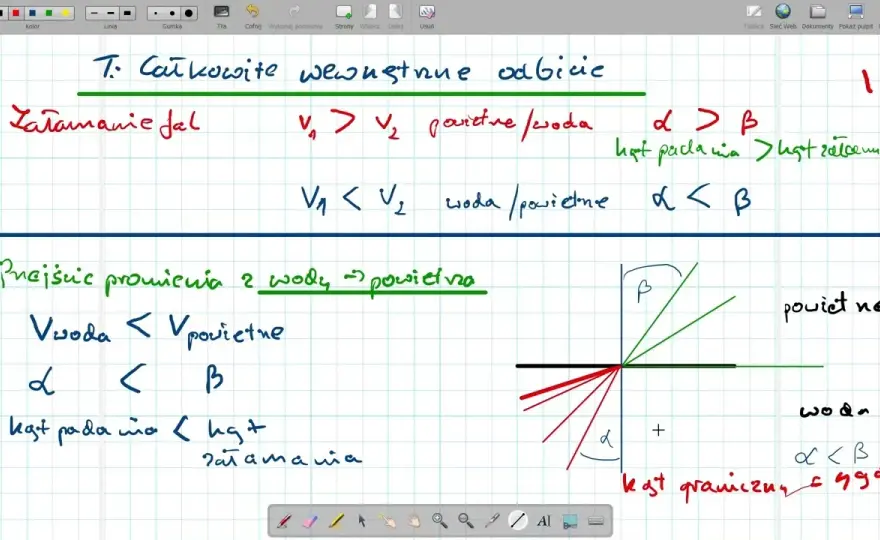 kolor Linia Gumka Tła Cofnij Strony Usuń Sieć Web Dokumenty Pokaż pulpit
T. Całkowite wewnętrzne odbicie
Załamanie fal v₁ > v₂ powietrze/woda α > β
kąt padania > kąt załamania
V₁ < V₂ woda/powietrze α < β
Przejście promienia z wody → powietrza
Vwoda < Vpowietrze
α < β
kąt padania < kąt
załamania
β
powietrze
α
woda
α < β
kąt graniczny =
AI